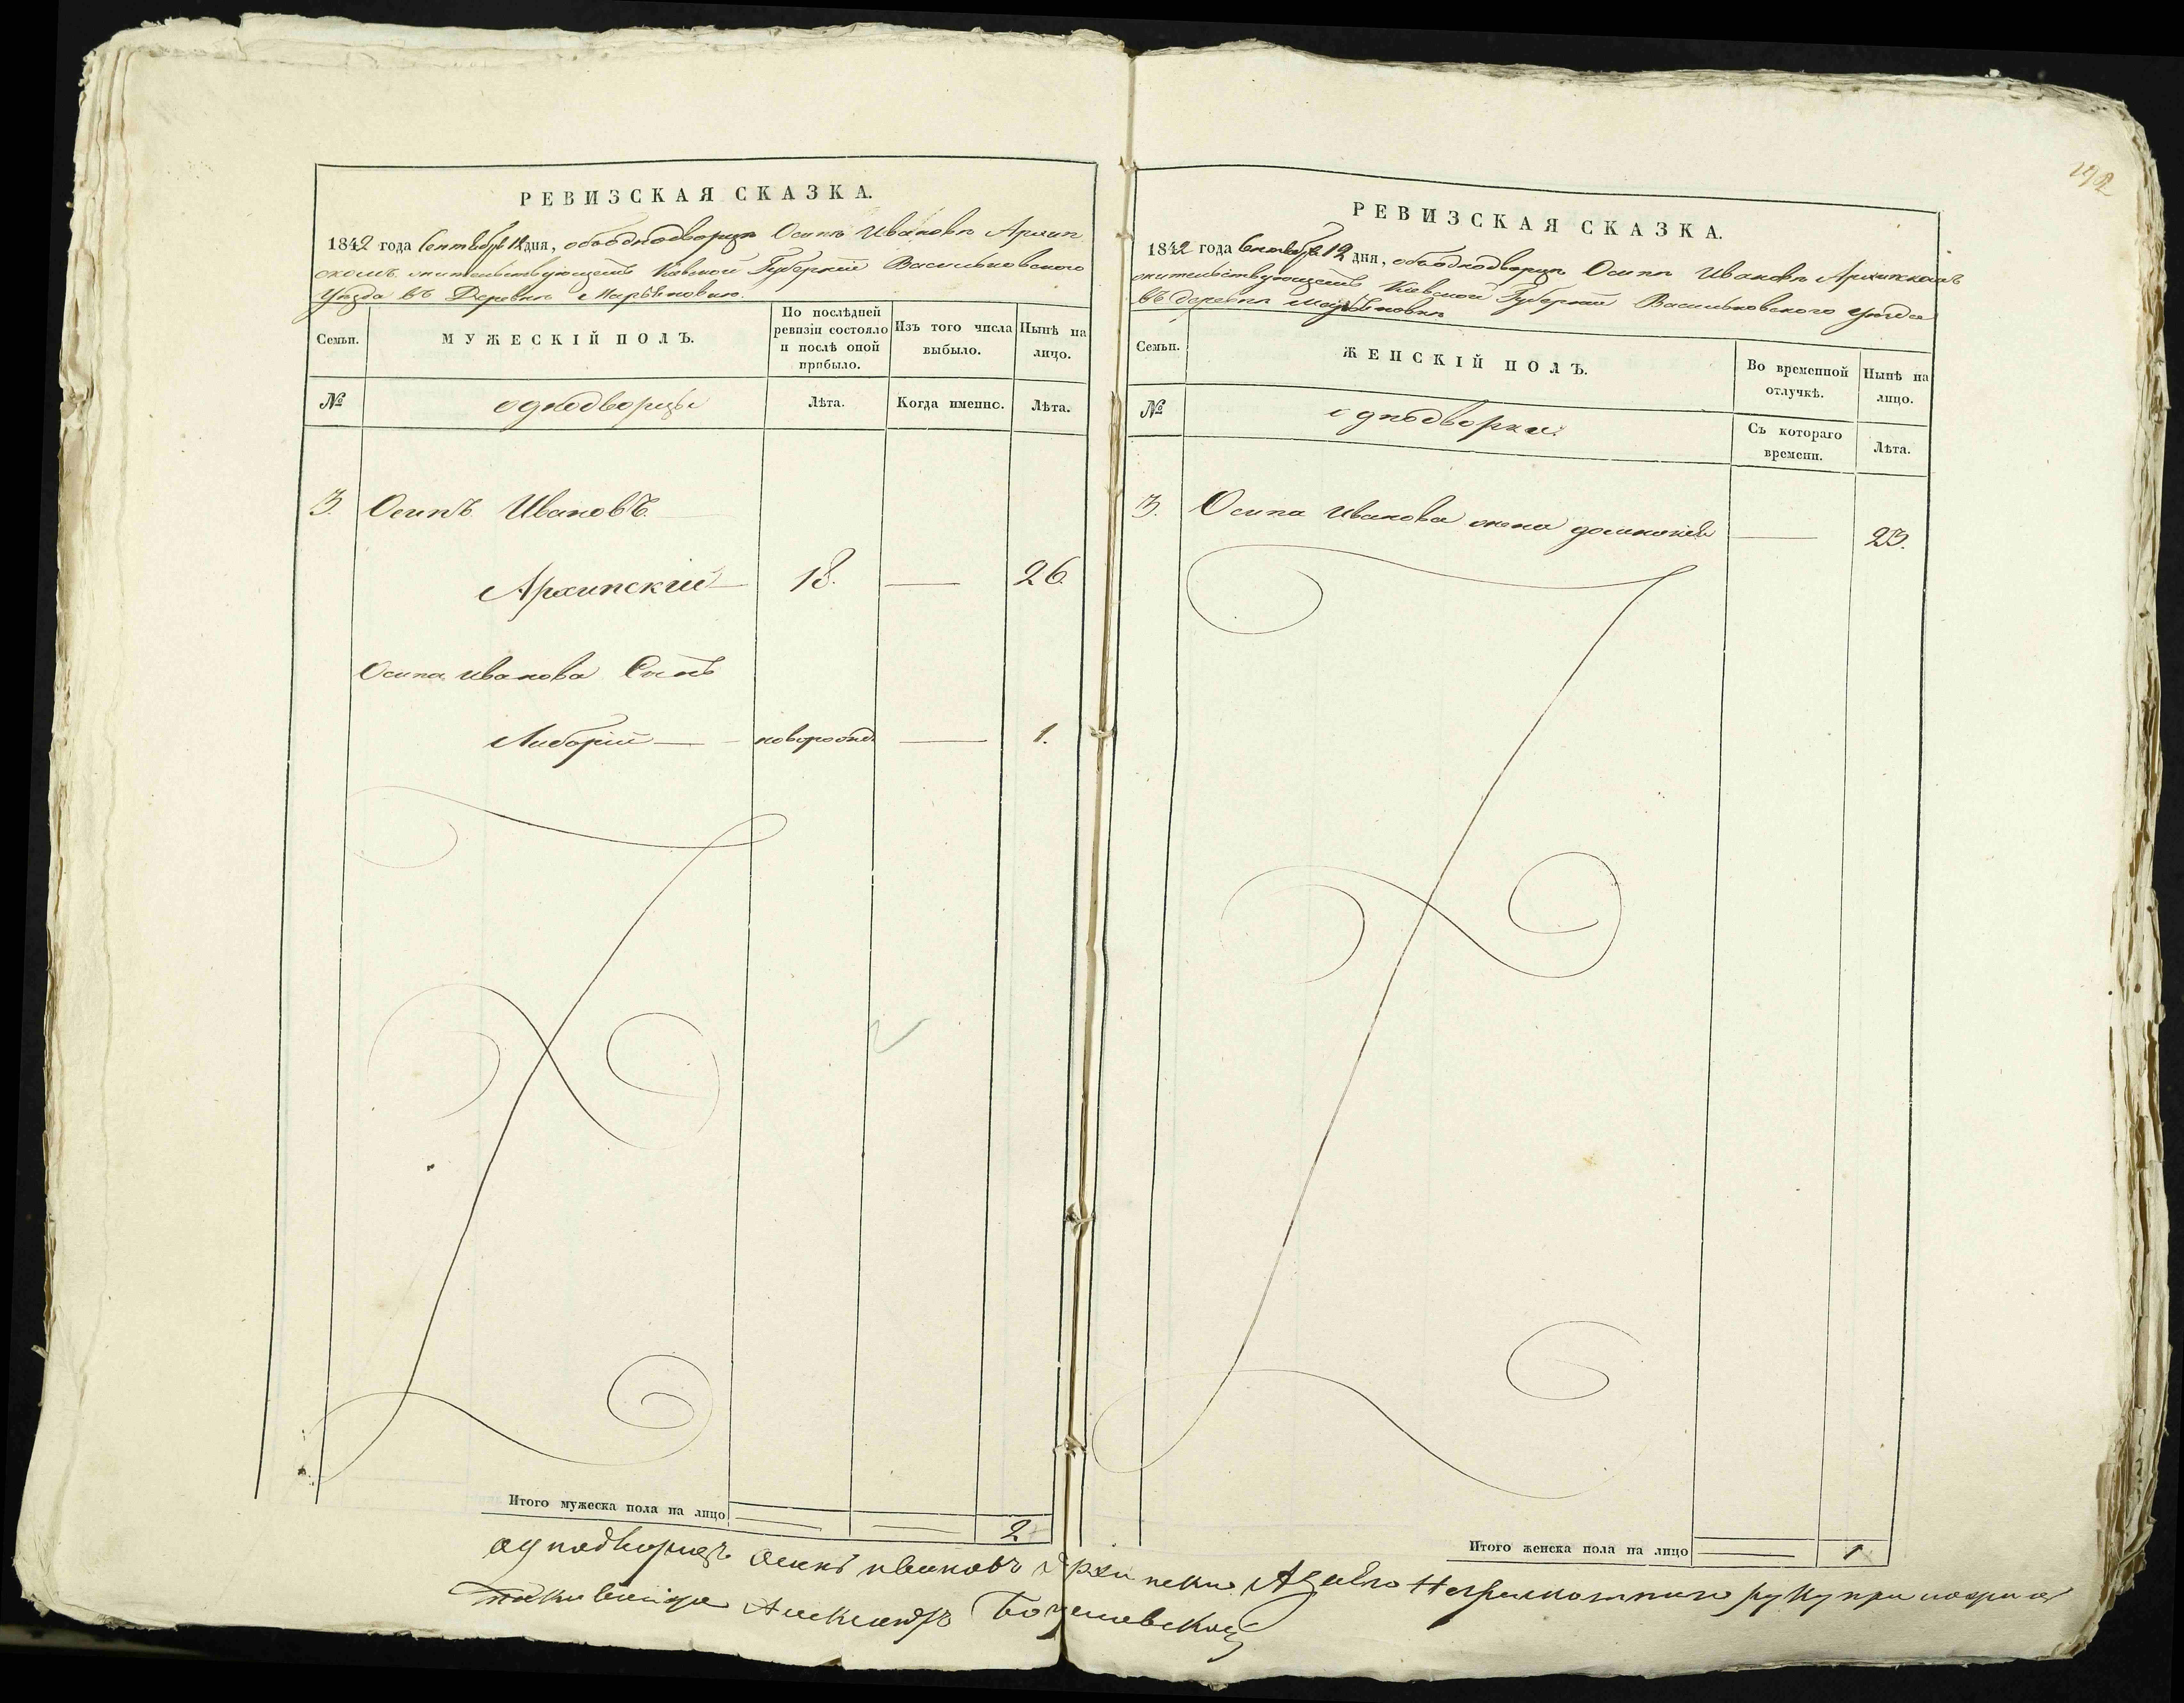 192
РЕВИЗСКАЯ СКАЗКА.
1842 года Сентября 12 дня, объ однодворцѣ Осипѣ Ивановѣ Архип
скомъ жительствующемъ Кіевской Губерніи Васильковского
Уѣзда въ Деревнѣ Марьяновки
Семьи.
МУЖЕСКІЙ ПОЛЪ.
По послѣдней
ревизіи состояло
и послѣ оной
прибыло.
Изъ того числа
выбыло.
Нынѣ на
лицо.
№
однодворцы
Лѣта.
Когда именно.
Лѣта.
3. Осипъ Ивановъ
Архипскій — 18. — 26.
Осипа Иванова Сынъ
Либорій — новорожд. — 1.
Итого мужеска пола на лицо 2
РЕВИЗСКАЯ СКАЗКА.
1842 года Сентября 12 дня, объ однодворцѣ Осипѣ Ивановѣ Архипскомъ
жительствующемъ Кіевской Губерніи Васильковского уѣзда
въ деревнѣ Марьяновки
Семьи.
ЖЕНСКІЙ ПОЛЪ.
Во временной
отлучкѣ.
Нынѣ на
лицо.
№
однодворки
Съ котораго
времени.
Лѣта.
3. Осипа Иванова жена — 23.
Итого женска пола на лицо 1
однодворецъ Осипъ Ивановъ Архипскій А за его неграмотного руку приложил
Александръ